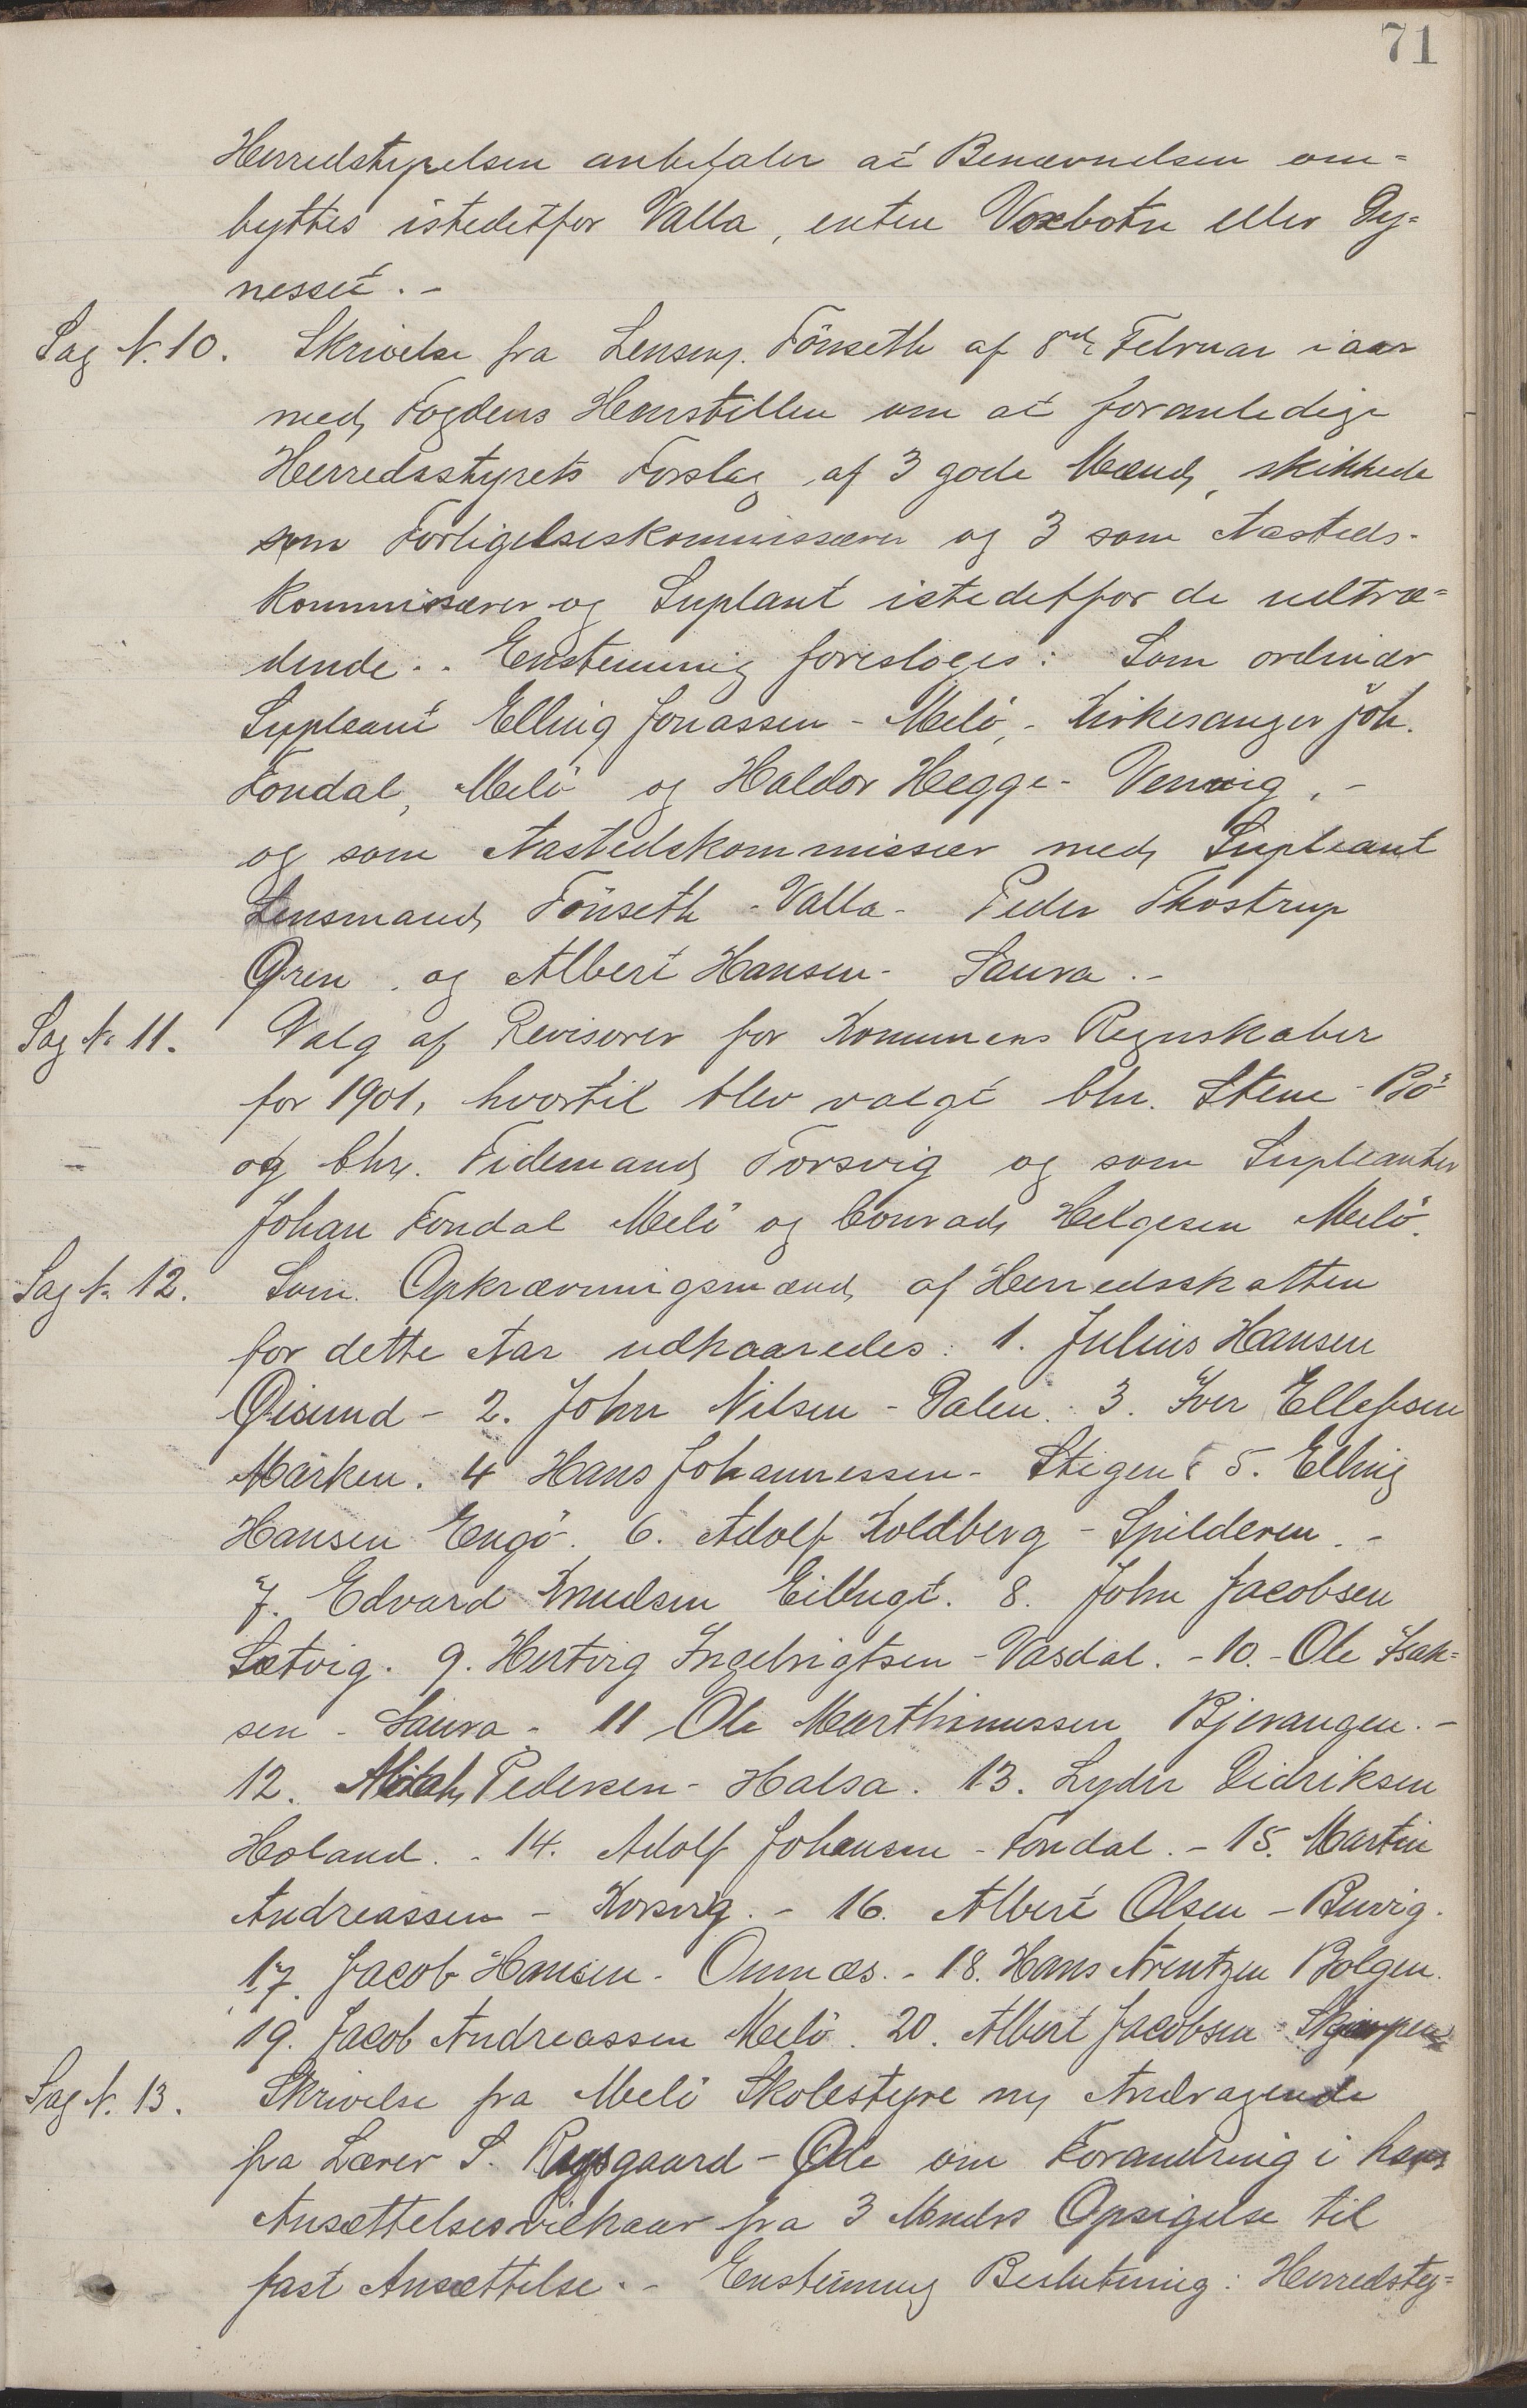 71
Herredstyrelsen anbefaler at Benævnelsen om=
byttes istedetfor Valla, enten Voxbotn eller Dy=
nesset. -
Sag N. 10. Skrivelse fra Lensm. Fönseth af 8de Februar i aar
med Fogdens Henstillen om at foranledige
Herredsstyrets Forslag af 3 gode Mænd, skikkede
som Forligelseskommissærer og 3 som Aasteds-
kommissærer og Suplant istedetfor de udtræ=
dende. - Enstemmig foresloges: Som ordinær
Supleant Elling Jonassen - Melö, - Kirkesanger Joh.
Fondal, Melö og Haldor Hegge - Venvig. -
og som Aastedskommissær med Supleant
Lensmand Fönseth - Valla - Peder Thostrup
Øren, og Albert Hansen - Saura. -
Sag N. 11. Valg af Revisorer for Kommunens Regnskaber
for 1901, hvortil blev valgt Chr. Stene - Bö
og Chr. Tidemand Forsvig og som Supleanter
Johan Fondal Melö og Conrad Helgesen Melö.
Sag N. 12. Som Opkrævningsmænd af Herredsskatten
for dette Aar udkaaredes: 1. Julius Hansen
Øisund - 2. John Nilsen - Dalen. 3. Iver Ellefsen
Marken. 4 Hans Johannessen - Stigen 5. Elling
Hansen Engö. 6. Adolf Koldberg - Spilderen. -
7. Edvard Knudsen Eidbugt. 8. John Jacobsen
Sætvig. 9. Hertvig Ingebrigtsen - Vasdal. - 10. - Ole Isak=
sen - Saura - 11 Ole Marthinussen Bjerangen. -
12. Pedersen - Halsa. 13. Lyder Didriksen
Holand. - 14. Adolf Johansen - Fondal. - 15. Martin
Andreassen - Korsvig. - 16. Albert Olsen - Buvig.
17. Jacob Hansen - Onnæs. - 18. Hans Arentzen Bolgen.
19. Jacob Andreassen Melö. 20. Albert Jacobsen Skjerpen
Sag N. 13. Skrivelse fra Melö Skolestyre m Andragende
fra Lærer S. - Øde om Forandring i hans
Ansættelsesvilkaar fra 3 Mndrs Opsigelse til
fast Ansættelse. - Enstemmig Beslutning: Herredsty=